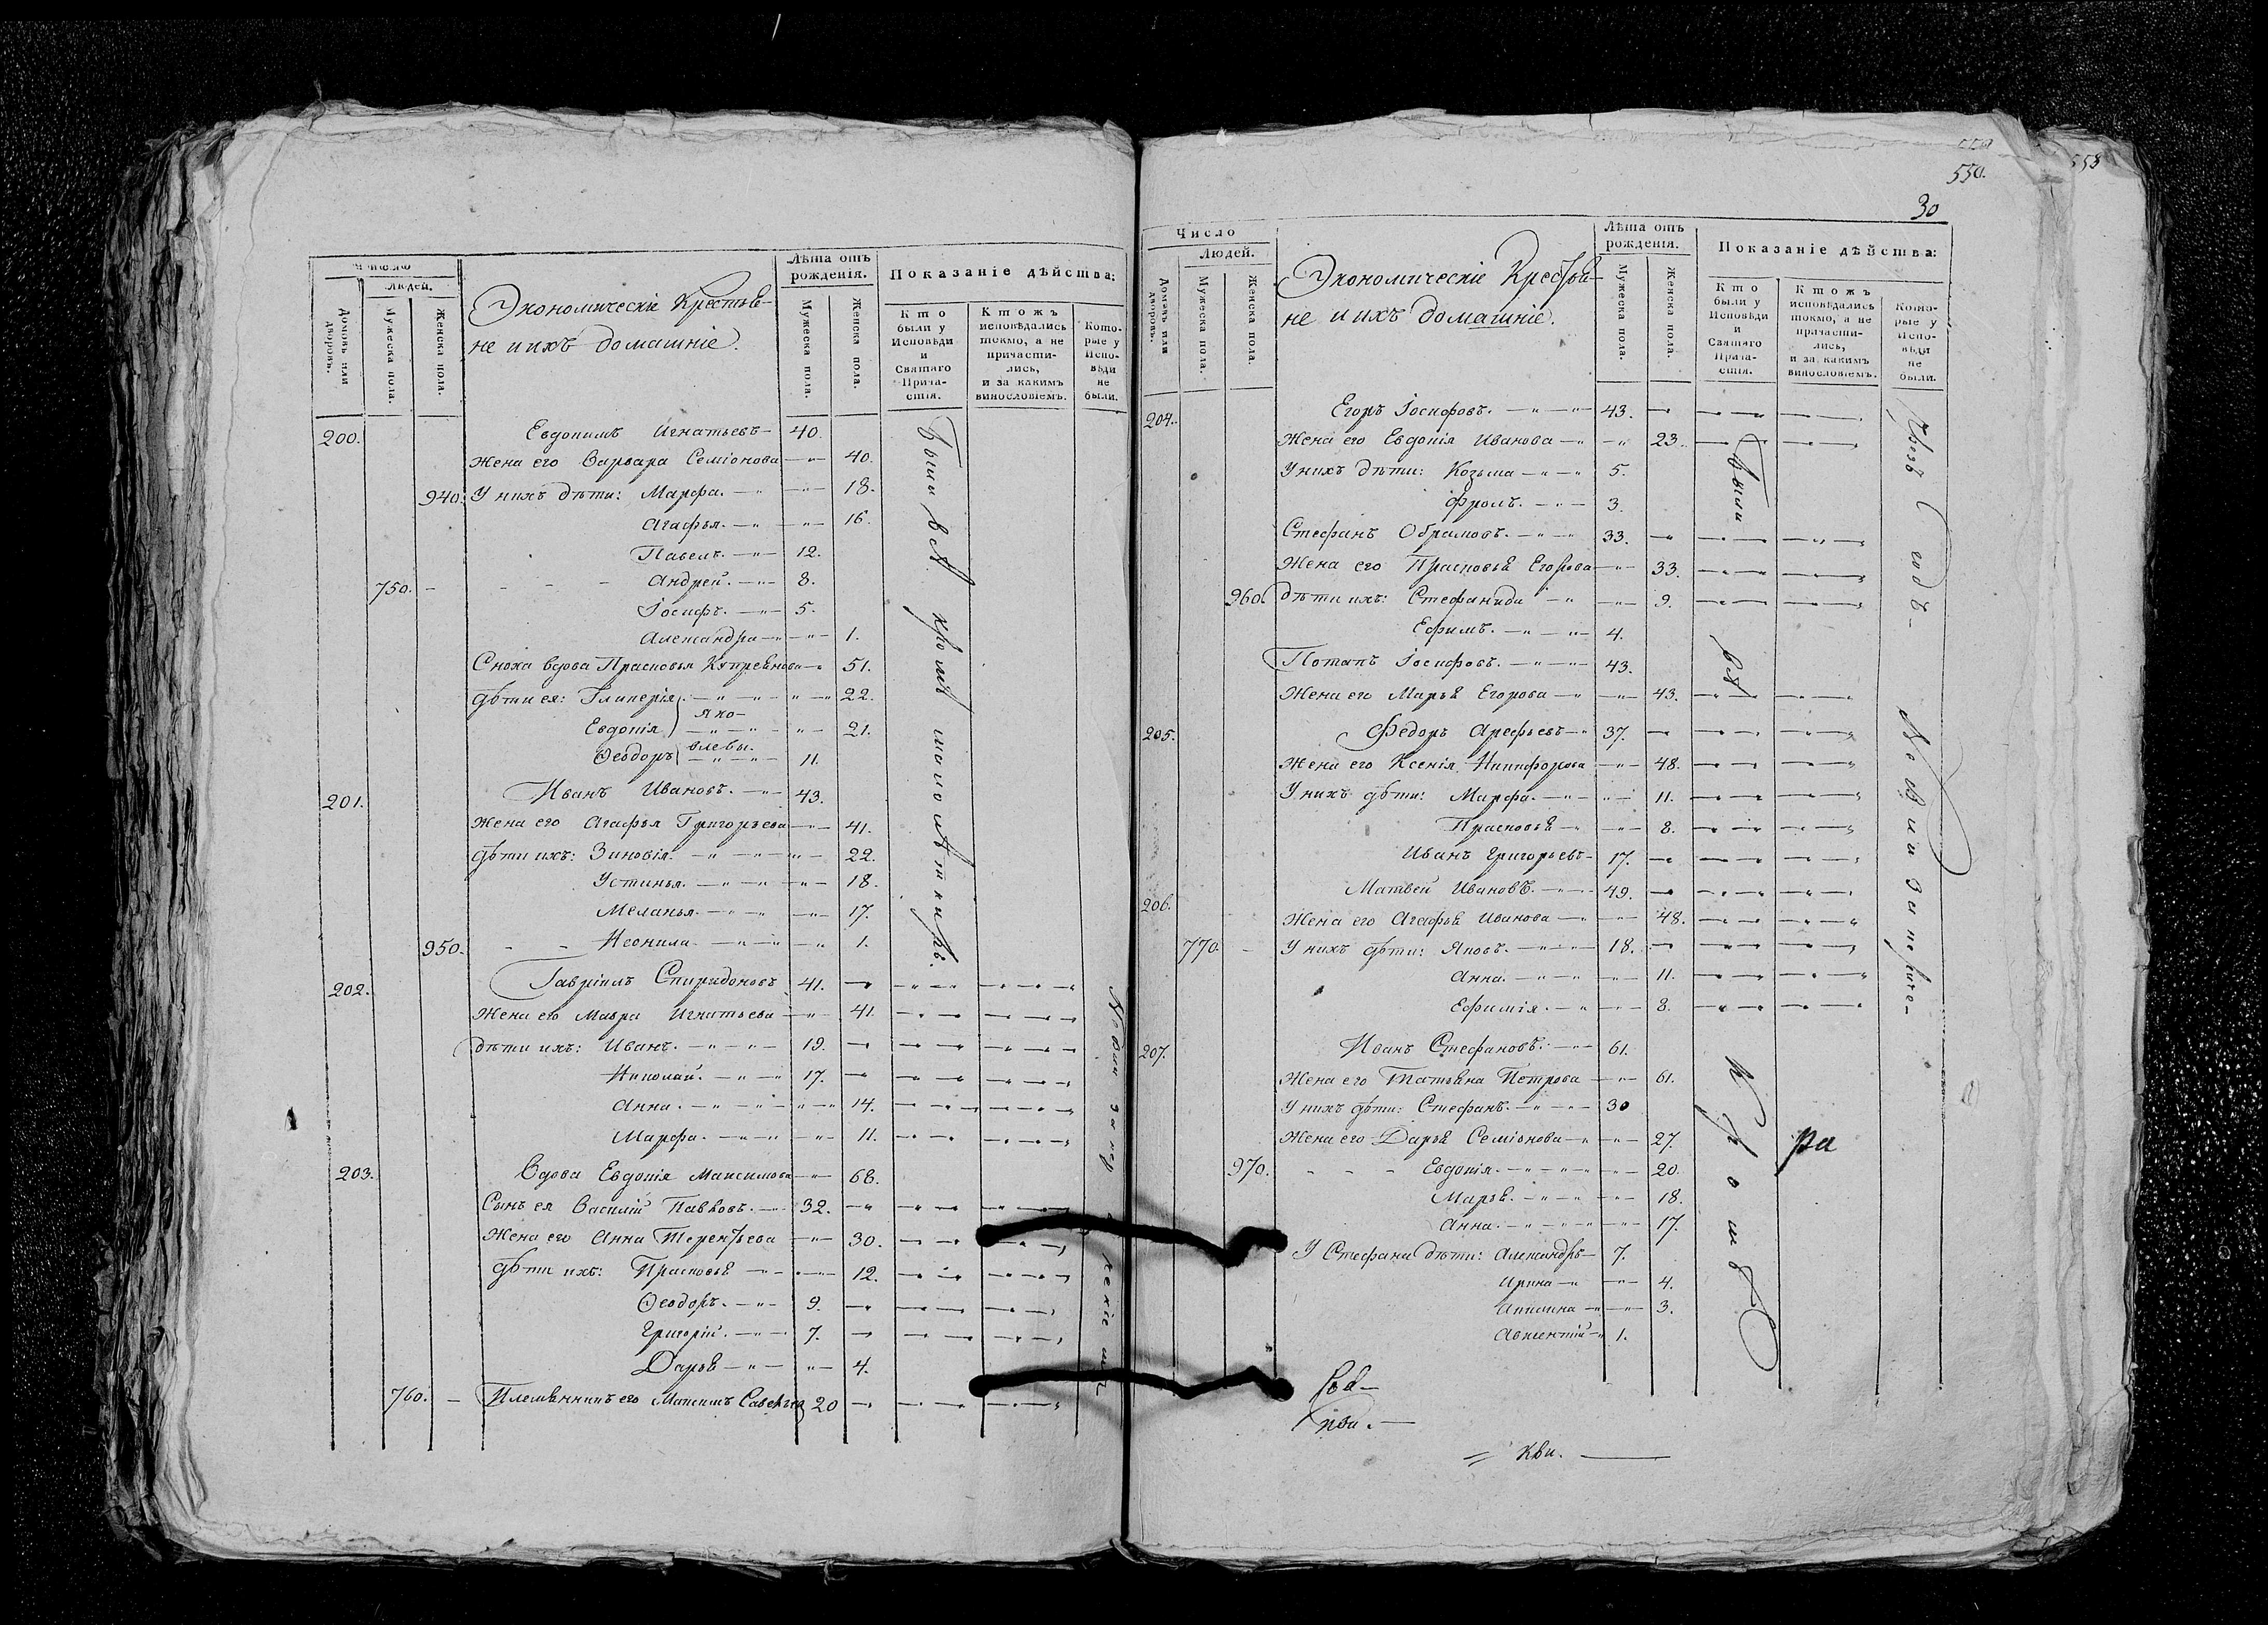 Число
Людей.
Домовъ или дворовъ.
Мужеска пола.
Женска пола.
Экономическіе Крестья-
не и ихъ домашніе.
Лѣта отъ рожденія.
Мужеска пола.
Женска пола.
Показаніе дѣйства:
Кто были у Исповѣди и Святаго Прича-стія.
Ктожъ исповѣдались токмо, а не причасти-лись, и за какимъ винословіемъ.
Кото-рые у Испо-вѣди не были.
200. Евдокимъ Игнатьевъ 40.
Жена его Варвара Семіонова 40.
940. У нихъ дѣти: Марфа. 18.
Агафья. 16.
Павелъ. 12.
750. Андрей. 8.
Іосифъ. 5.
Александра 1.
Сноха вдова Прасковья Купреянова 51.
дѣти ея: Гликерія 22.
Яко-
Евдокія 21.
влевы.
Ѳеодоръ 11.
201. Иванъ Ивановъ. 43.
Жена его Агафья Григорьева 41.
дѣти ихъ: Зиновія. 22.
Устинья. 18.
Меланья. 17.
950. Неонила 1.
202. Гавріилъ Спиридоновъ 41.
Жена его Мавра Игнатьева 41.
дѣти ихъ: Иванъ. 19.
Николай. 17.
Анна. 14.
Марфа. 11.
203. Вдова Евдокія Максимова 68.
Сынъ ея Василій Павловъ. 32.
Жена его Анна Терентьева 30.
дѣти ихъ: Прасковья 12.
Ѳеодоръ. 9.
Григорій. 7.
Дарья 4.
760. Племянникъ его Максимъ 20
Были всѣ кромѣ малолѣтнихъ.
550.
558
30
Число
Людей.
Домовъ или дворовъ.
Мужеска пола.
Женска пола.
Экономическіе Крестья-
не и ихъ домашніе.
Лѣта отъ рожденія.
Мужеска пола.
Женска пола.
Показаніе дѣйства:
Кто были у Исповѣди и Святаго Прича-стія.
Ктожъ исповѣдались токмо, а не причасти-лись, и за какимъ винословіемъ.
Кото-рые у Испо-вѣди не были.
204. Егоръ Іосифовъ. 43.
Жена его Евдокія Иванова 23.
У нихъ дѣти: Козьма 5.
Фролъ. 3.
Стефанъ Обрамовъ. 33.
Жена его Прасковья Егорова 33.
960. дѣти ихъ: Стефанида 9.
Ефимъ. 4.
Потапъ Іосифовъ. 43.
Жена его Марья Егорова 43.
205. Федоръ Арефьевъ 37.
Жена его Ксенія Никифорова 48.
У нихъ дѣти: Марфа. 11.
Прасковья 8.
Иванъ Григорьевъ 17.
206. Матвей Ивановъ. 49.
Жена его Агафья Иванова 48.
770. У нихъ дѣти: Яковъ. 18.
Анна. 11.
Ефимія. 8.
207. Иванъ Стефановъ. 61.
Жена его Татьяна Петрова 61.
У нихъ дѣти: Стефанъ. 30
Жена его Дарья Семіонова 27.
970. Евдокія. 20.
Марья. 18.
Анна. 17.
У Стефана дѣти: Александръ 7.
Ирина 4.
Акилина 3.
Авксентій 1.
Были
всѣ
Кромѣ
ра